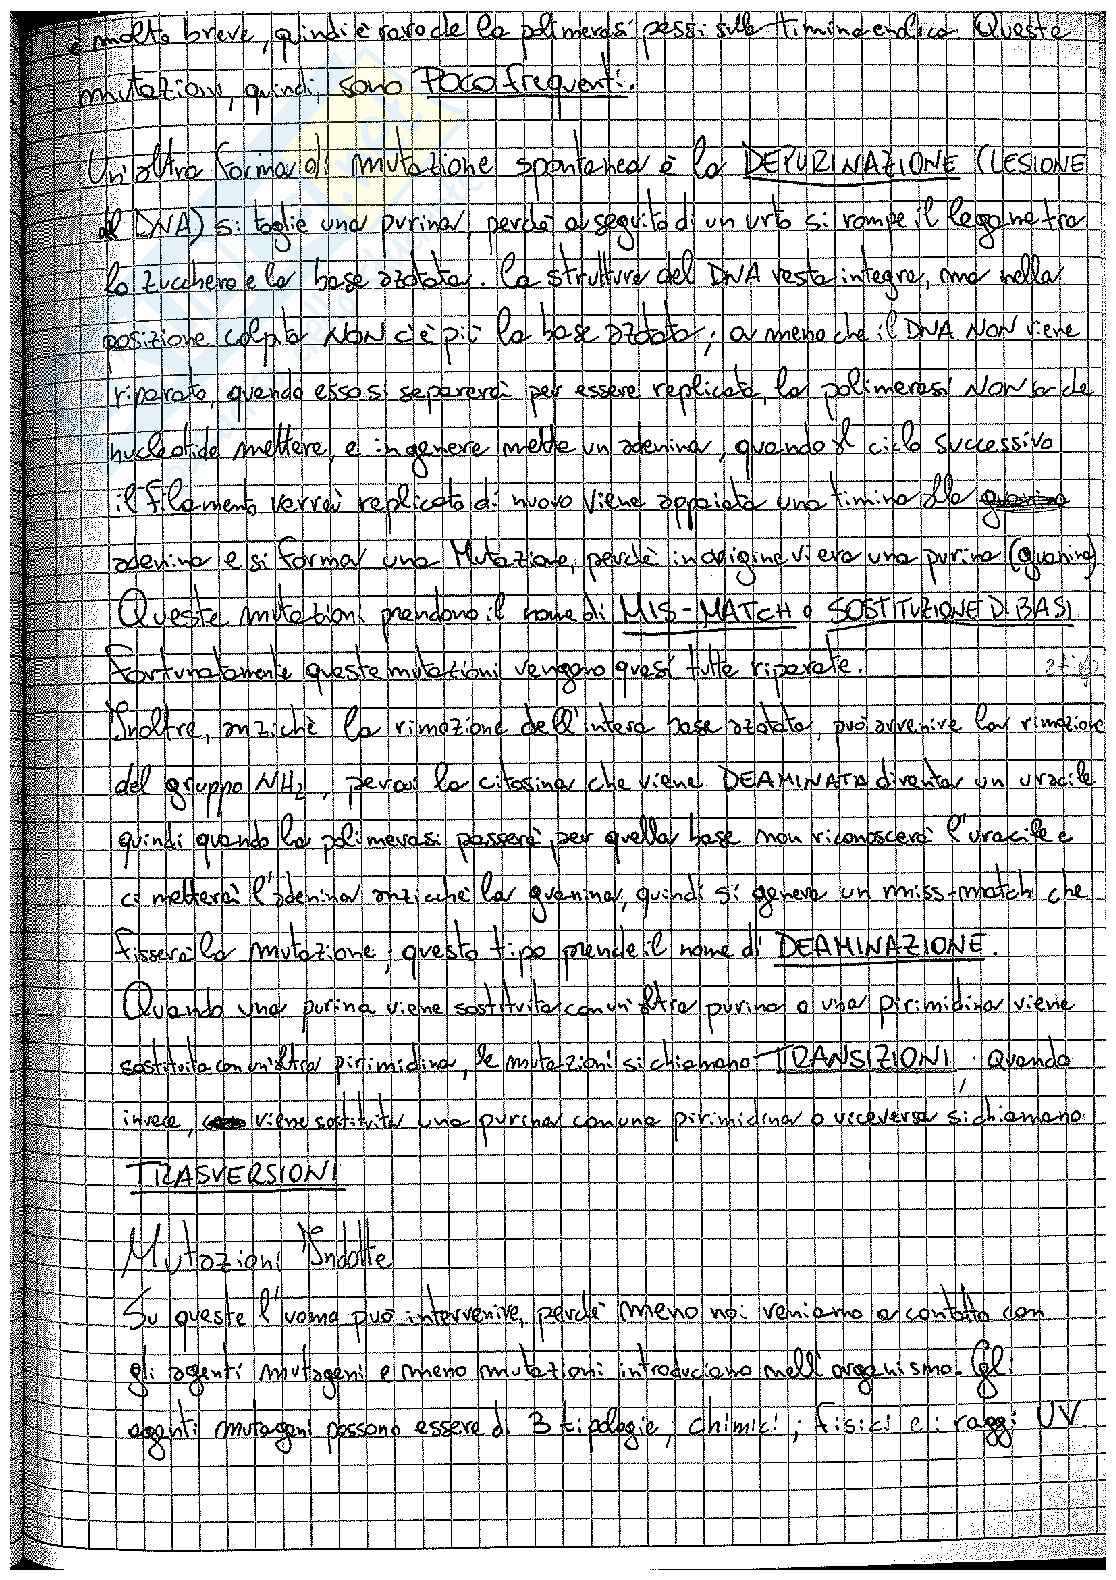 è molto breve, quindi è raro che la polimerasi passi sulla timina enolica. Queste
mutazioni, quindi, sono POCO frequenti.
Un'altra forma di mutazione spontanea è la DEPURINAZIONE (LESIONE
al DNA) si toglie una purina, perché a seguito di un urto si rompe il legame tra
lo zucchero e la base azotata. La struttura del DNA resta integra, ma nella
posizione colpita NON c'è più la base azotata; a meno che il DNA NON viene
riparato, quando esso si separerà per essere replicato, la polimerasi NON sa che
nucleotide mettere, e in genere mette un adenina, quando al ciclo successivo
il filamento verrà replicato di nuovo viene appaiata una timina alla
adenina e si forma una Mutazione, perché in origine vi era una purina (guanina)
Queste mutazioni prendono il nome di MIS-MATCH o SOSTITUZIONE DI BASI
Fortunatamente queste mutazioni vengono quasi tutte riparate.
Inoltre, anziché la rimozione dell'intera base azotata, può avvenire la rimozione
del gruppo NH2, perciò la citosina che viene DEAMINATA diventa un uracile
quindi quando la polimerasi passerà per quella base non riconoscerà l'uracile e
ci metterà l'adenina anziché la guanina, quindi si genera un miss-match che
fisserà la mutazione; questo tipo prende il nome di DEAMINAZIONE.
Quando una purina viene sostituita con un'altra purina o una pirimidina viene
sostituita con un'altra pirimidina, le mutazioni si chiamano TRANSIZIONI; Quando
invece, viene sostituita una purina con una pirimidina o viceversa si chiamano
TRASVERSIONI
Mutazioni Indotte
Su queste l'uomo può intervenire, perché meno noi veniamo a contatto con
gli agenti mutageni e meno mutazioni introduciamo nell'organismo. Gli
agenti mutageni possono essere di 3 tipologie, chimici; fisici e i raggi UV